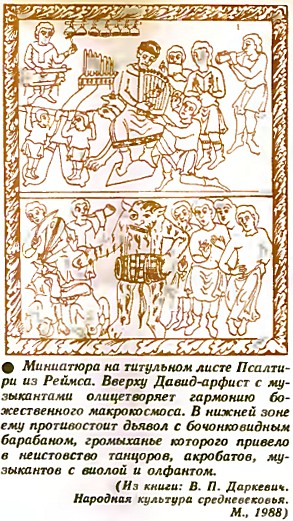 1
● Миниатюра на титульном листе Псалти-
ри из Реймса. Вверху Давид-арфист с му-
зыкантами олицетворяет гармонию бо-
жественного макрокосмоса. В нижней зоне
ему противостоит дьявол с бочонковидным
барабаном, громыханье которого привело
в неистовство танцоров, акробатов, му-
зыкантов с виолой и олфантом.
(Из книги: В. П. Даркевич.
Народная культура средневековья.
М., 1988)